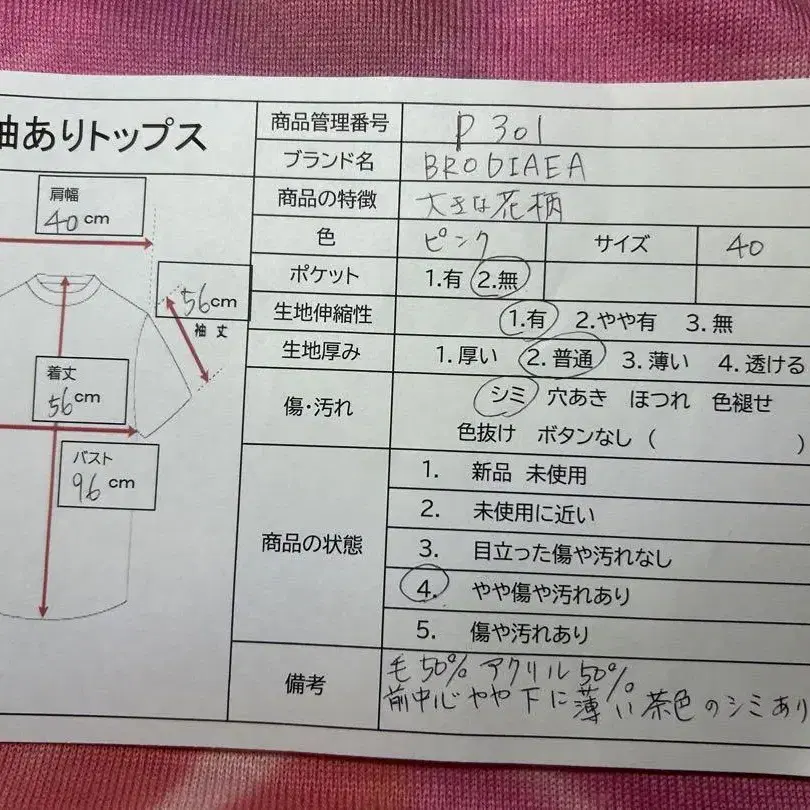 袖ありトップス
肩幅
40 cm
56cm
袖丈
着丈
56cm
バスト
96 cm
商品管理番号 P301
ブランド名 BRODIAEA
商品の特徴 大きな花柄
色 ピンク サイズ 40
ポケット 1.有 2.無
生地伸縮性 1.有 2.やや有 3.無
生地厚み 1.厚い 2.普通 3.薄い 4.透ける
傷・汚れ シミ 穴あき ほつれ 色褪せ
色抜け ボタンなし ( )
商品の状態
1. 新品 未使用
2. 未使用に近い
3. 目立った傷や汚れなし
4. やや傷や汚れあり
5. 傷や汚れあり
備考 毛50% アクリル50%
前中心やや下に薄い茶色のシミあり